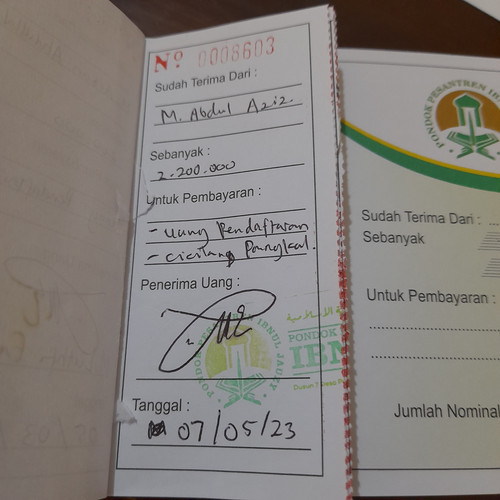 Nº 0008603
Sudah Terima Dari :
M. Abdul Aziz
Sebanyak :
2.200.000
Untuk Pembayaran :
- uang Pendaftaran
- cicilang Pangkal.
Penerima Uang :
PONDOK PESANTREN IBNUL JAUZY
PONDOK
IBN
Tanggal :
07/05/23
PONDOK PESANTREN IBNUL
Sudah Terima Dari :
Sebanyak
Untuk Pembayaran :
Jumlah Nominal